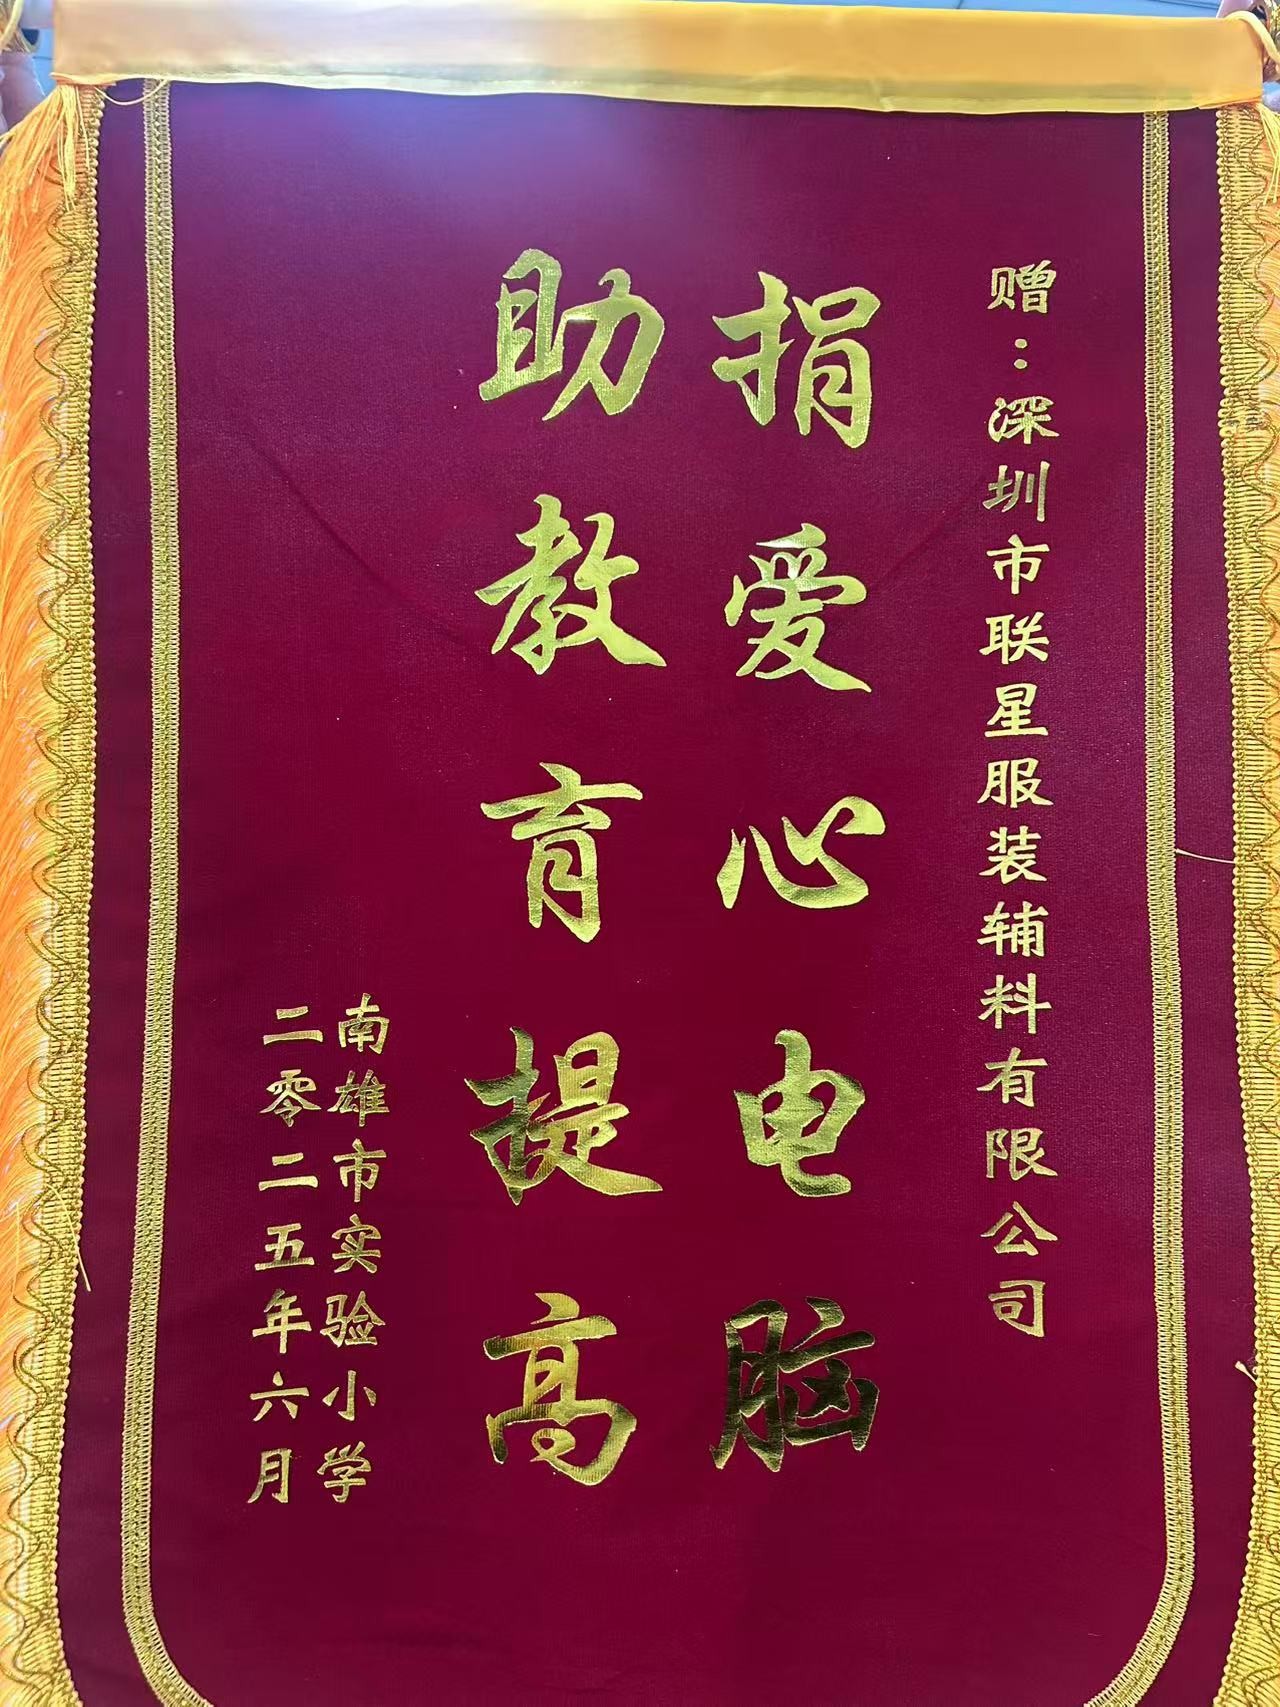 赠：深圳市联星服装辅料有限公司
捐爱心电脑
助教育提高
南雄市实验小学
二零二五年六月